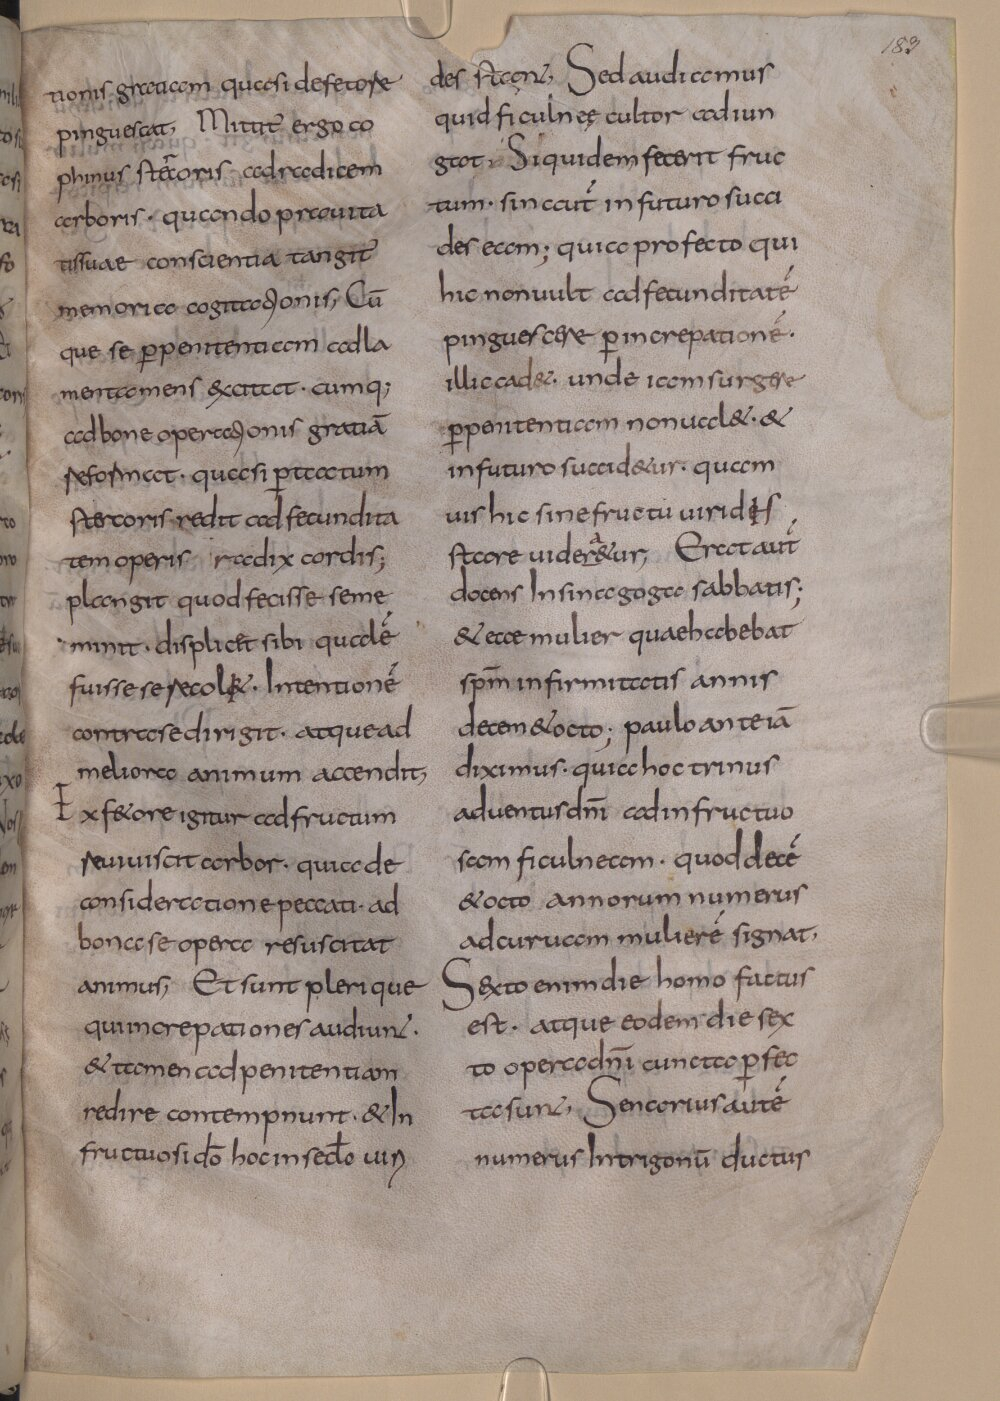 183
tionis gratiam quasi defetore
pinguescat, Mittit̄ ergo co
phinus stercoris ad radicem
arboris · quando prauita
tis suae conscientia tangit̄
memoria cogitationis; Cū
que se p̱ penitentiam ad la
menta mens excitat · cumq;
ad bone operationis gratiā
reformat · quasi p̱ tactum
stercoris redit ad fecundita
tem operis radix cordis;
plangit quod fecisse seme
minit · displicet sibi qualē
fuisse se recolit · Intentionē
contra se dirigit · atque ad
meliora animum accendit,
Ex fetore igitur ad fructum
reuiuiscit arbor · quia de
consideratione peccati · ad
bona se opera resuscitat
animus; Et sunt plerique
qui increpationes audiunt ·
& tamen ad penitentiam
redire contempnunt · & In
fructuosi dō hoc in sedlo uiri
des stant, Sed audiamus
quid ficulneę cultor adiun
gat · Siquidem fecerit fruc
tum · sin aut̄ in futuro succi
des eam; quia profecto qui
hic non uult ad fecunditatē
pinguescere p̱ increpationē ·
illic cad& · unde iam surgere
p̱ penitentiam non ual& · &
in futuro succid&ur · quam
uis hic sine fructu uiridis
stare uider&ur; Erat aut̄
docens In sinagoga sabbatis;
& ecce mulier quae habebat
sp̄m infirmitatis annis
decem & octo; paulo ante iā
diximus · quia hoc trinus
aduentus dn̄i ad infructuo
sam ficulneam · quod decē
& octo annorum numerus
ad curuam mulierē signat,
Sexto enim die homo factus
est · atque eodem die sex
to opera dn̄i cuncta p̱fec
ta sunt, Senarius autē
numerus In trigonū ductus